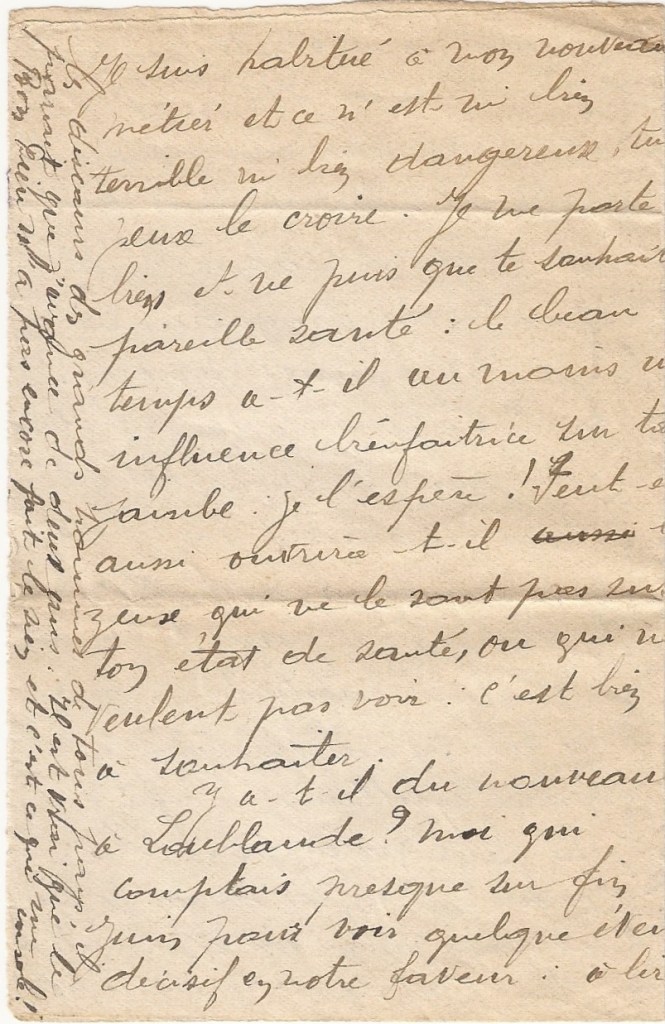 Je suis habitué à mon nouveau
métier et ce n'est ni bien
terrible ni bien dangereux, tu
peux le croire. Je me porte
bien et ne puis que te souhait
pareille santé : le beau
temps a-t-il au moins u
influence bienfaitrice sur ta
jambe : je l'espère ! Peut-e
aussi ouvrira-t-il aussi
yeux qui ne le sont pas sur
ton état de santé, ou qui n
veulent pas voir : c'est bien
à souhaiter.
Y a-t-il du nouveau
à Loublande ? Moi qui
comptais presque sur fin
Juin pour voir quelque éven
décisif en notre faveur : à lir
les discours des grands hommes de tous pays il
parait que j'avance de deux ans : Il est vrai que le
Bon Dieu n'a pas encore fait le sien et c'est ce qui me
console !